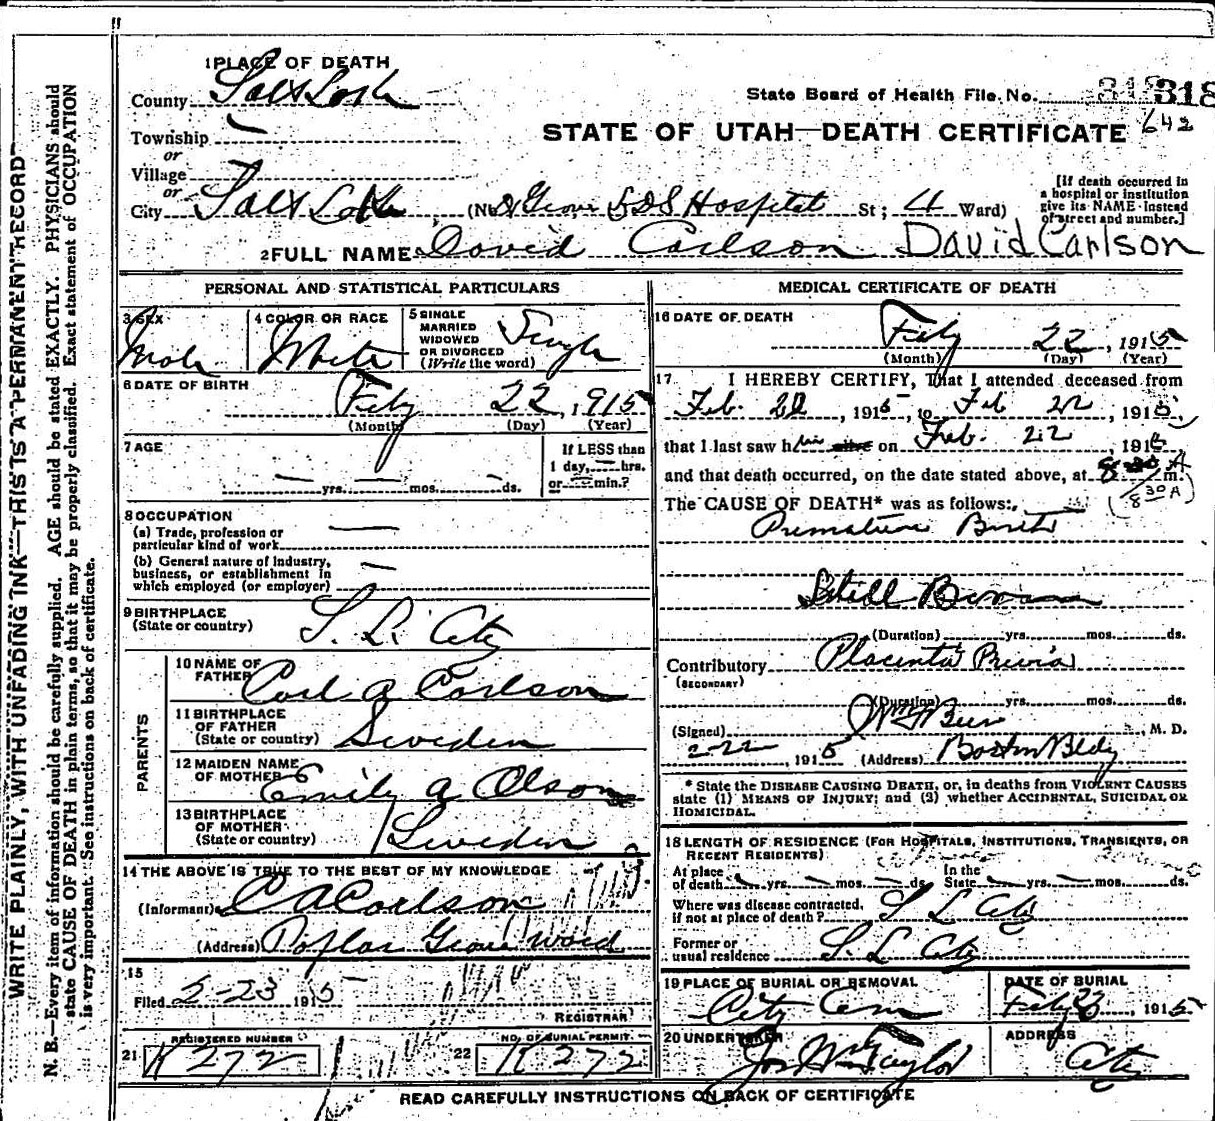 1 PLACE OF DEATH
County Salt Lake
State Board of Health File No. 318
Township —
STATE OF UTAH—DEATH CERTIFICATE 642
or
Village
or
City Salt Lake (No. Groves LDS Hospital St; 4 Ward)
[If death occurred in a hospital or institution give its NAME instead of street and number.]
2 FULL NAME David Carlson David Carlson
PERSONAL AND STATISTICAL PARTICULARS
3 SEX Male
4 COLOR OR RACE White
5 SINGLE MARRIED WIDOWED OR DIVORCED (Write the word) Single
6 DATE OF BIRTH
Feby 22, 1915
(Month) (Day) (Year)
7 AGE
— yrs. — mos. — ds.
If LESS than
1 day, — hrs.
or — min.?
8 OCCUPATION
(a) Trade, profession or
particular kind of work —
(b) General nature of industry,
business, or establishment in
which employed (or employer) —
9 BIRTHPLACE
(State or country) S. L. City
PARENTS
10 NAME OF
FATHER Carl A Carlson
11 BIRTHPLACE
OF FATHER
(State or country) Sweden
12 MAIDEN NAME
OF MOTHER Emily A Olson
13 BIRTHPLACE
OF MOTHER
(State or country) Sweden
14 THE ABOVE IS TRUE TO THE BEST OF MY KNOWLEDGE
(Informant) C A Carlson
(Address) Poplar Grove Ward
15
Filed 2-23 1915
REGISTRAR
REGISTERED NUMBER
21 K 272
NO. OF BURIAL PERMIT
22 K 272
MEDICAL CERTIFICATE OF DEATH
16 DATE OF DEATH
Feby 22, 1915
(Month) (Day) (Year)
17 I HEREBY CERTIFY, That I attended deceased from
Feb. 1915, to Feb 22, 1915,
that I last saw him alive on Feb. 22 1915
and that death occurred, on the date stated above, at A m.
(8 30 A)
The CAUSE OF DEATH* was as follows:
Premature Birth
Still Born
(Duration) yrs. mos. ds.
Contributory Placenta Previa
(SECONDARY)
(Duration) yrs. mos. ds.
(Signed) , M. D.
2-22, 1915 (Address) Boston Bldg
* State the DISEASE CAUSING DEATH, or, in deaths from VIOLENT CAUSES
state (1) MEANS OF INJURY; and (2) whether ACCIDENTAL, SUICIDAL OR
HOMICIDAL.
18 LENGTH OF RESIDENCE (FOR HOSPITALS, INSTITUTIONS, TRANSIENTS, OR
RECENT RESIDENTS)
At place of death — yrs. — mos. — ds.
In the State — yrs. — mos. ds.
Where was disease contracted,
if not at place of death? S L City
Former or
usual residence S. L. City
19 PLACE OF BURIAL OR REMOVAL
City Cem
DATE OF BURIAL
Feb 23, 1915
20 UNDERTAKER
Jos Wm Taylor
ADDRESS
City
READ CAREFULLY INSTRUCTIONS ON BACK OF CERTIFICATE
WRITE PLAINLY, WITH UNFADING INK—THIS IS A PERMANENT RECORD
N. B.—Every item of information should be carefully supplied. AGE should be stated EXACTLY. PHYSICIANS should
state CAUSE OF DEATH in plain terms, so that it may be properly classified. Exact statement of OCCUPATION
is very important. See instructions on back of certificate.